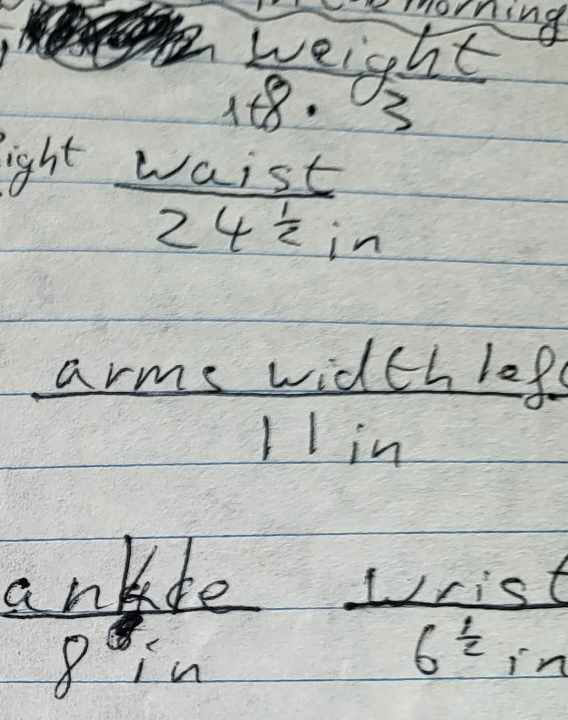 morning
weight
118. 3
waist
24 1/2 in
arms width left
11 in
ankle wrist
8 in 6 1/2 in